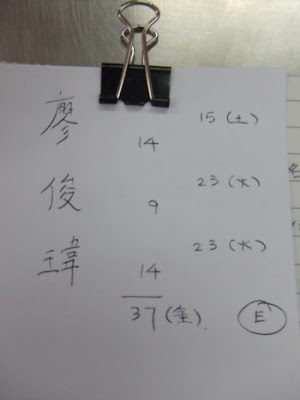 廖
15 (土)
14
俊
23 (火)
9
瑋
23 (火)
14
37 (金)
E